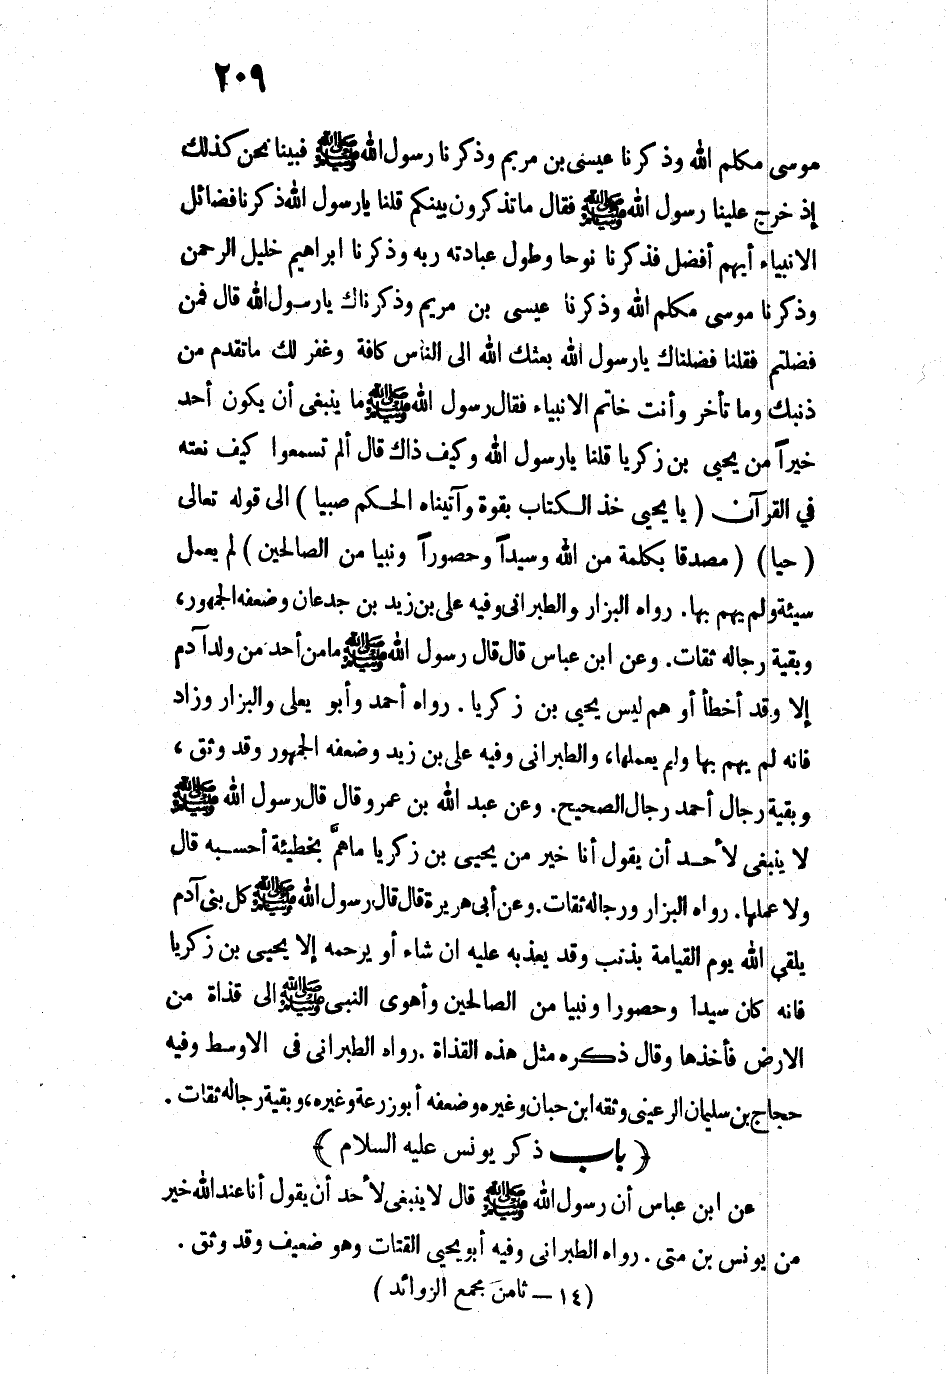 ٢٠٩
موسى مكلم الله وذكرنا عيسى بن مريم وذكرنا رسول الله ﷺ فبينا نحن كذلك
إذ خرج علينا رسول الله ﷺ فقال ماتذكرون بينكم قلنا يارسول الله ذكرنا فضائل
الانبياء أيهم أفضل فذكرنا نوحا وطول عبادته ربه وذكرنا ابراهيم خليل الرحمن
وذكرنا موسى مكلم الله وذكرنا عيسى بن مريم وذكرناك يارسول الله قال فمن
فضلتم فقلنا فضلناك يارسول الله بعثك الله الى الناس كافة وغفر لك ماتقدم من
ذنبك وما تأخر وأنت خاتم الانبياء فقال رسول الله ﷺ ما ينبغى أن يكون أحد
خيراً من يحيى بن زكريا قلنا يارسول الله وكيف ذاك قال ألم تسمعوا كيف نعته
في القرآن ( يا يحيى خذ الكتاب بقوة وآتيناه الحكم صبيا ) الى قوله تعالى
( حيا ) ( مصدقا بكلمة من الله وسيداً وحصوراً ونبيا من الصالحين ) لم يعمل
سيئة ولم يهم بها. رواه البزار والطبرانى وفيه على بن زيد بن جدعان وضعفه الجمهور،
وبقية رجاله ثقات. وعن ابن عباس قال قال رسول الله ﷺ مامن أحد من ولد آدم
إلا وقد أخطأ أو هم ليس يحيى بن زكريا . رواه أحمد وأبو يعلى والبزار وزاد
فانه لم يهم بها ولم يعملها، والطبرانى وفيه على بن زيد وضعفه الجمهور وقد وثق ،
وبقية رجال أحمد رجال الصحيح. وعن عبد الله بن عمرو قال قال رسول الله ﷺ
لا ينبغى لأحد أن يقول أنا خير من يحيى بن زكريا ماهمَّ بخطيئة أحسبه قال
ولا عملها. رواه البزار ورجاله ثقات. وعن أبى هريرة قال قال رسول الله ﷺ كل بنى آدم
يلقى الله يوم القيامة بذنب وقد يعذبه عليه ان شاء أو يرحمه إلا يحيى بن زكريا
فانه كان سيدا وحصورا ونبيا من الصالحين وأهوى النبى ﷺ الى قذاة من
الارض فأخذها وقال ذكره مثل هذه القذاة . رواه الطبرانى فى الاوسط وفيه
حجاج بن سليمان الرعينى وثقه ابن حبان وغيره وضعفه أبو زرعة وغيره، وبقية رجاله ثقات .
﴿ باب ذكر يونس عليه السلام ﴾
عن ابن عباس أن رسول الله ﷺ قال لا ينبغى لأحد أن يقول أنا عند الله خير
من يونس بن متى . رواه الطبرانى وفيه أبو يحيى القتات وهو ضعيف وقد وثق .
( ١٤ — ثامن مجمع الزوائد )